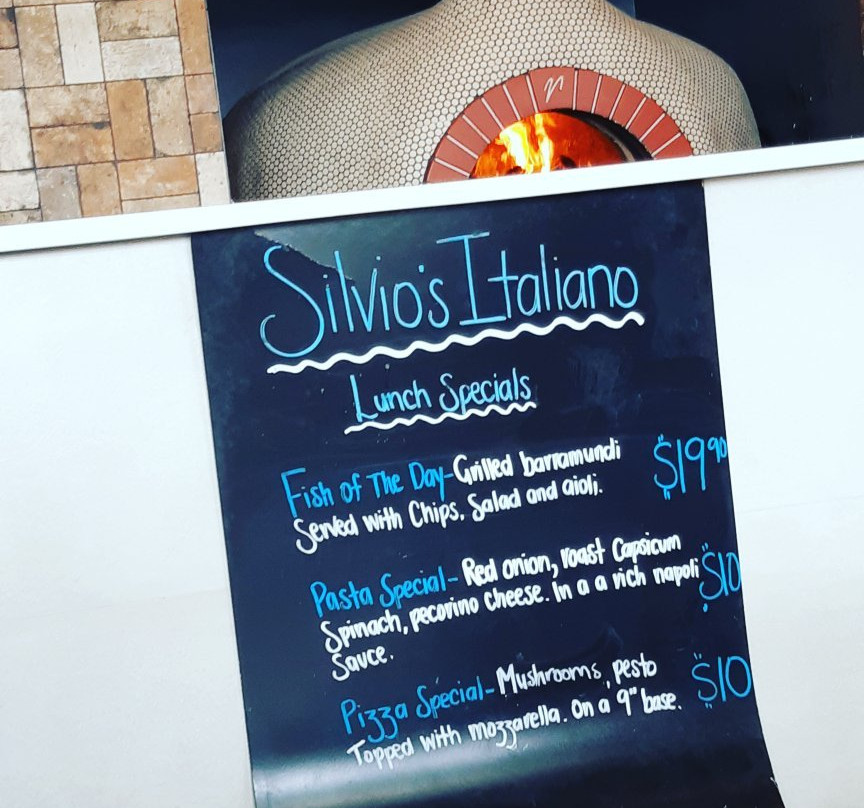 Silvio's Italiano
Lunch Specials
Fish of The Day - Grilled barramundi $19⁹⁰
Served with Chips, Salad and aioli.
Pasta Special - Red onion, roast Capsicum
Spinach, pecorino cheese. In a a rich napoli $10
Sauce.
Pizza Special - Mushrooms, pesto $10
Topped with mozzarella. On a 9" base.